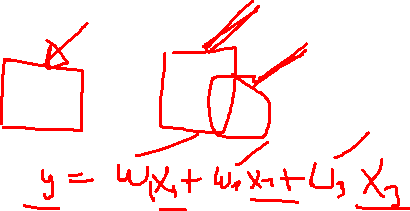 y = w₁x₁ + w₁x₁ + w₃ x₃